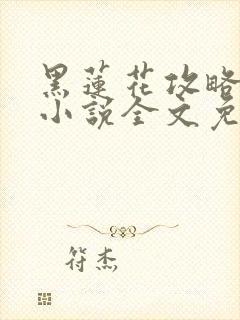 黑蓮花攻略
小說全文免
符杰